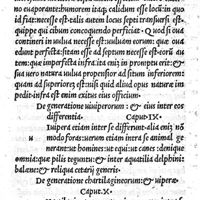 no euaporante: humorem itaq; calidum esse locũ: in quo
id fiat: necesse est: talis autem locus septi transuersi est.
quippe qui cibum concoquendo perficiat. Quod si oua
contineri in uulua necesse est: uuluam eorum: quæ oua
edunt perfecta: sitam esse ad septum necesse est: eorũ au
tem: quæ imperfecta infra. ita enim in promptu erit: &
sua uero natura impedit infra: ad situm inferiorem
quam ad superiorem est: nisi quid aliud opus naturæ im
pediat: infra enim exitus eius officium.
De generatione uiuiperorum: & eius inter eos
differentia. Caput .IX.
Iupara etiam inter se differunt: alia enĩ nõ
modo foras: uerum etiam intra se animal ge
nerant: ut homines: ut equi: ut canes: denique
omnia: quæ pilis teguntur: & inter aquatilia delphini:
balenæ: & reliqua cetarij generis.
De generatione chartilagineorum: & uipera⸗
Caput .X.